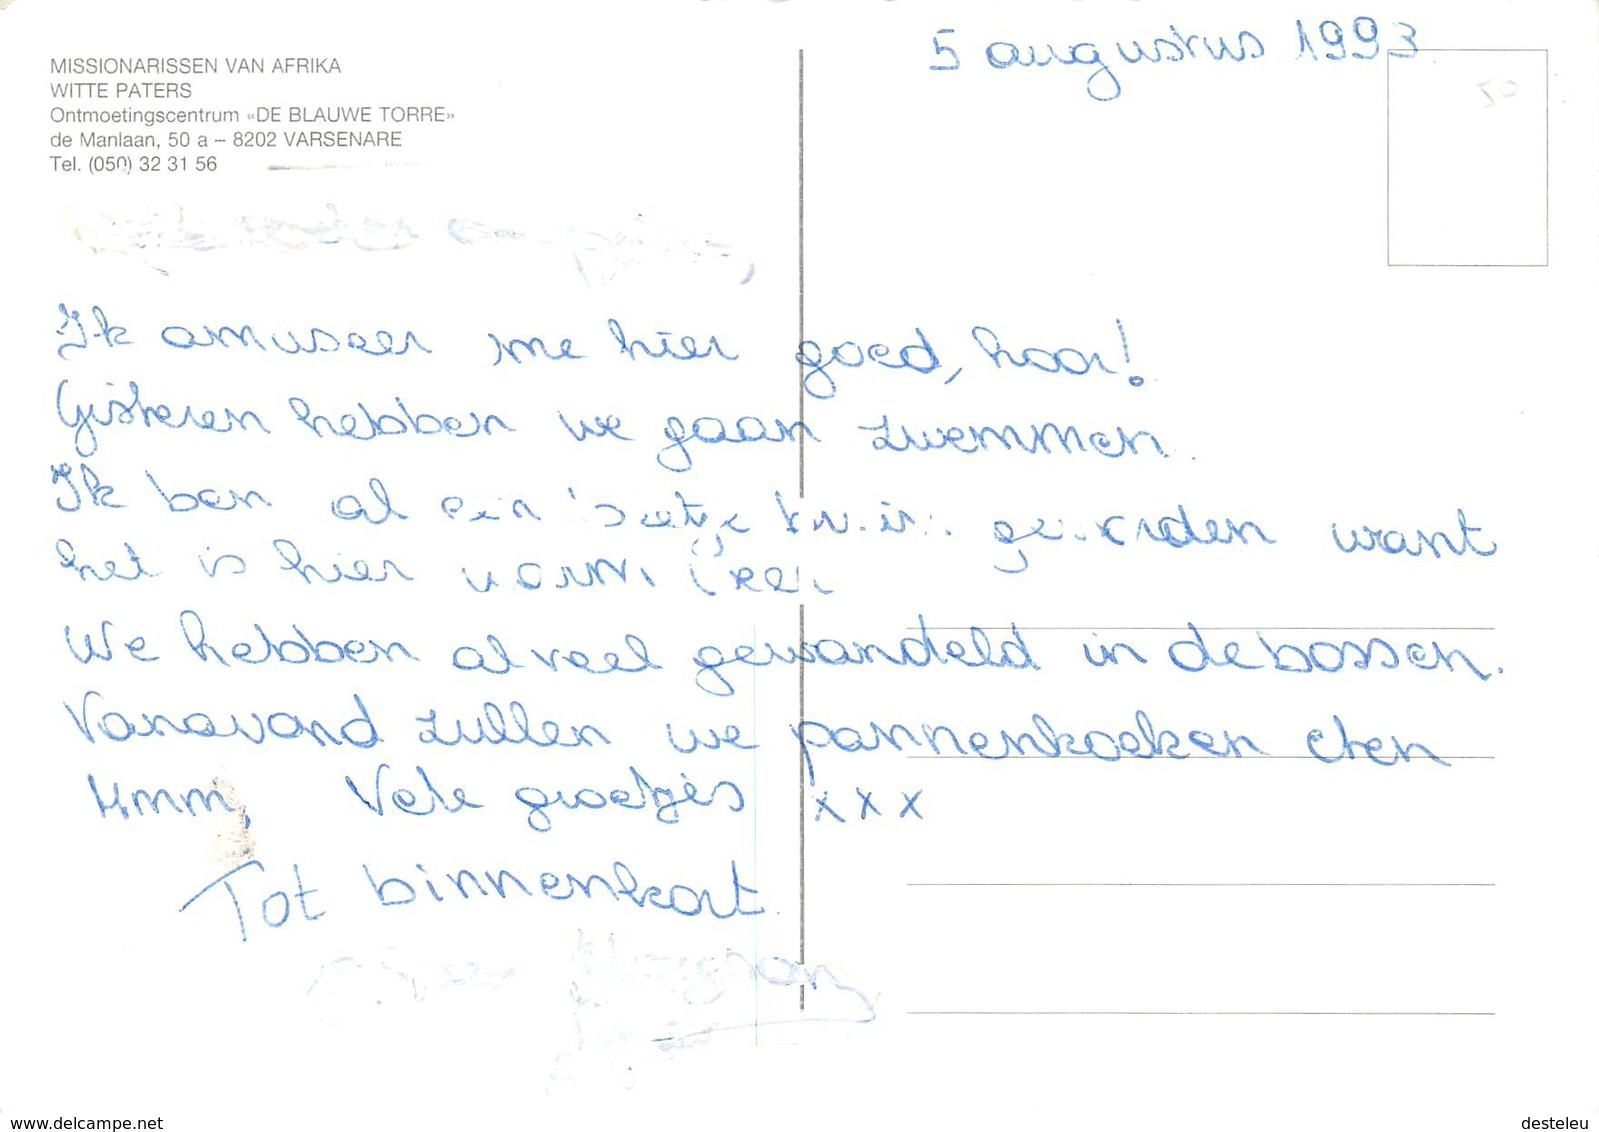 5 augustus 1993
MISSIONARISSEN VAN AFRIKA
WITTE PATERS
Ontmoetingscentrum «DE BLAUWE TORRE»
de Manlaan, 50 a – 8202 VARSENARE
Tel. (050) 32 31 56
50
Ik amuseer me hier goed, hoor!
Gisteren hebben we gaan zwemmen.
Ik ben al een beetje bruin geworden want
het is hier warm
We hebben al veel gewandeld in de bossen.
Vanavond zullen we pannenkoeken eten
Hmm, Vele groetjes xxx
Tot binnenkort
www.delcampe.net
desteleu